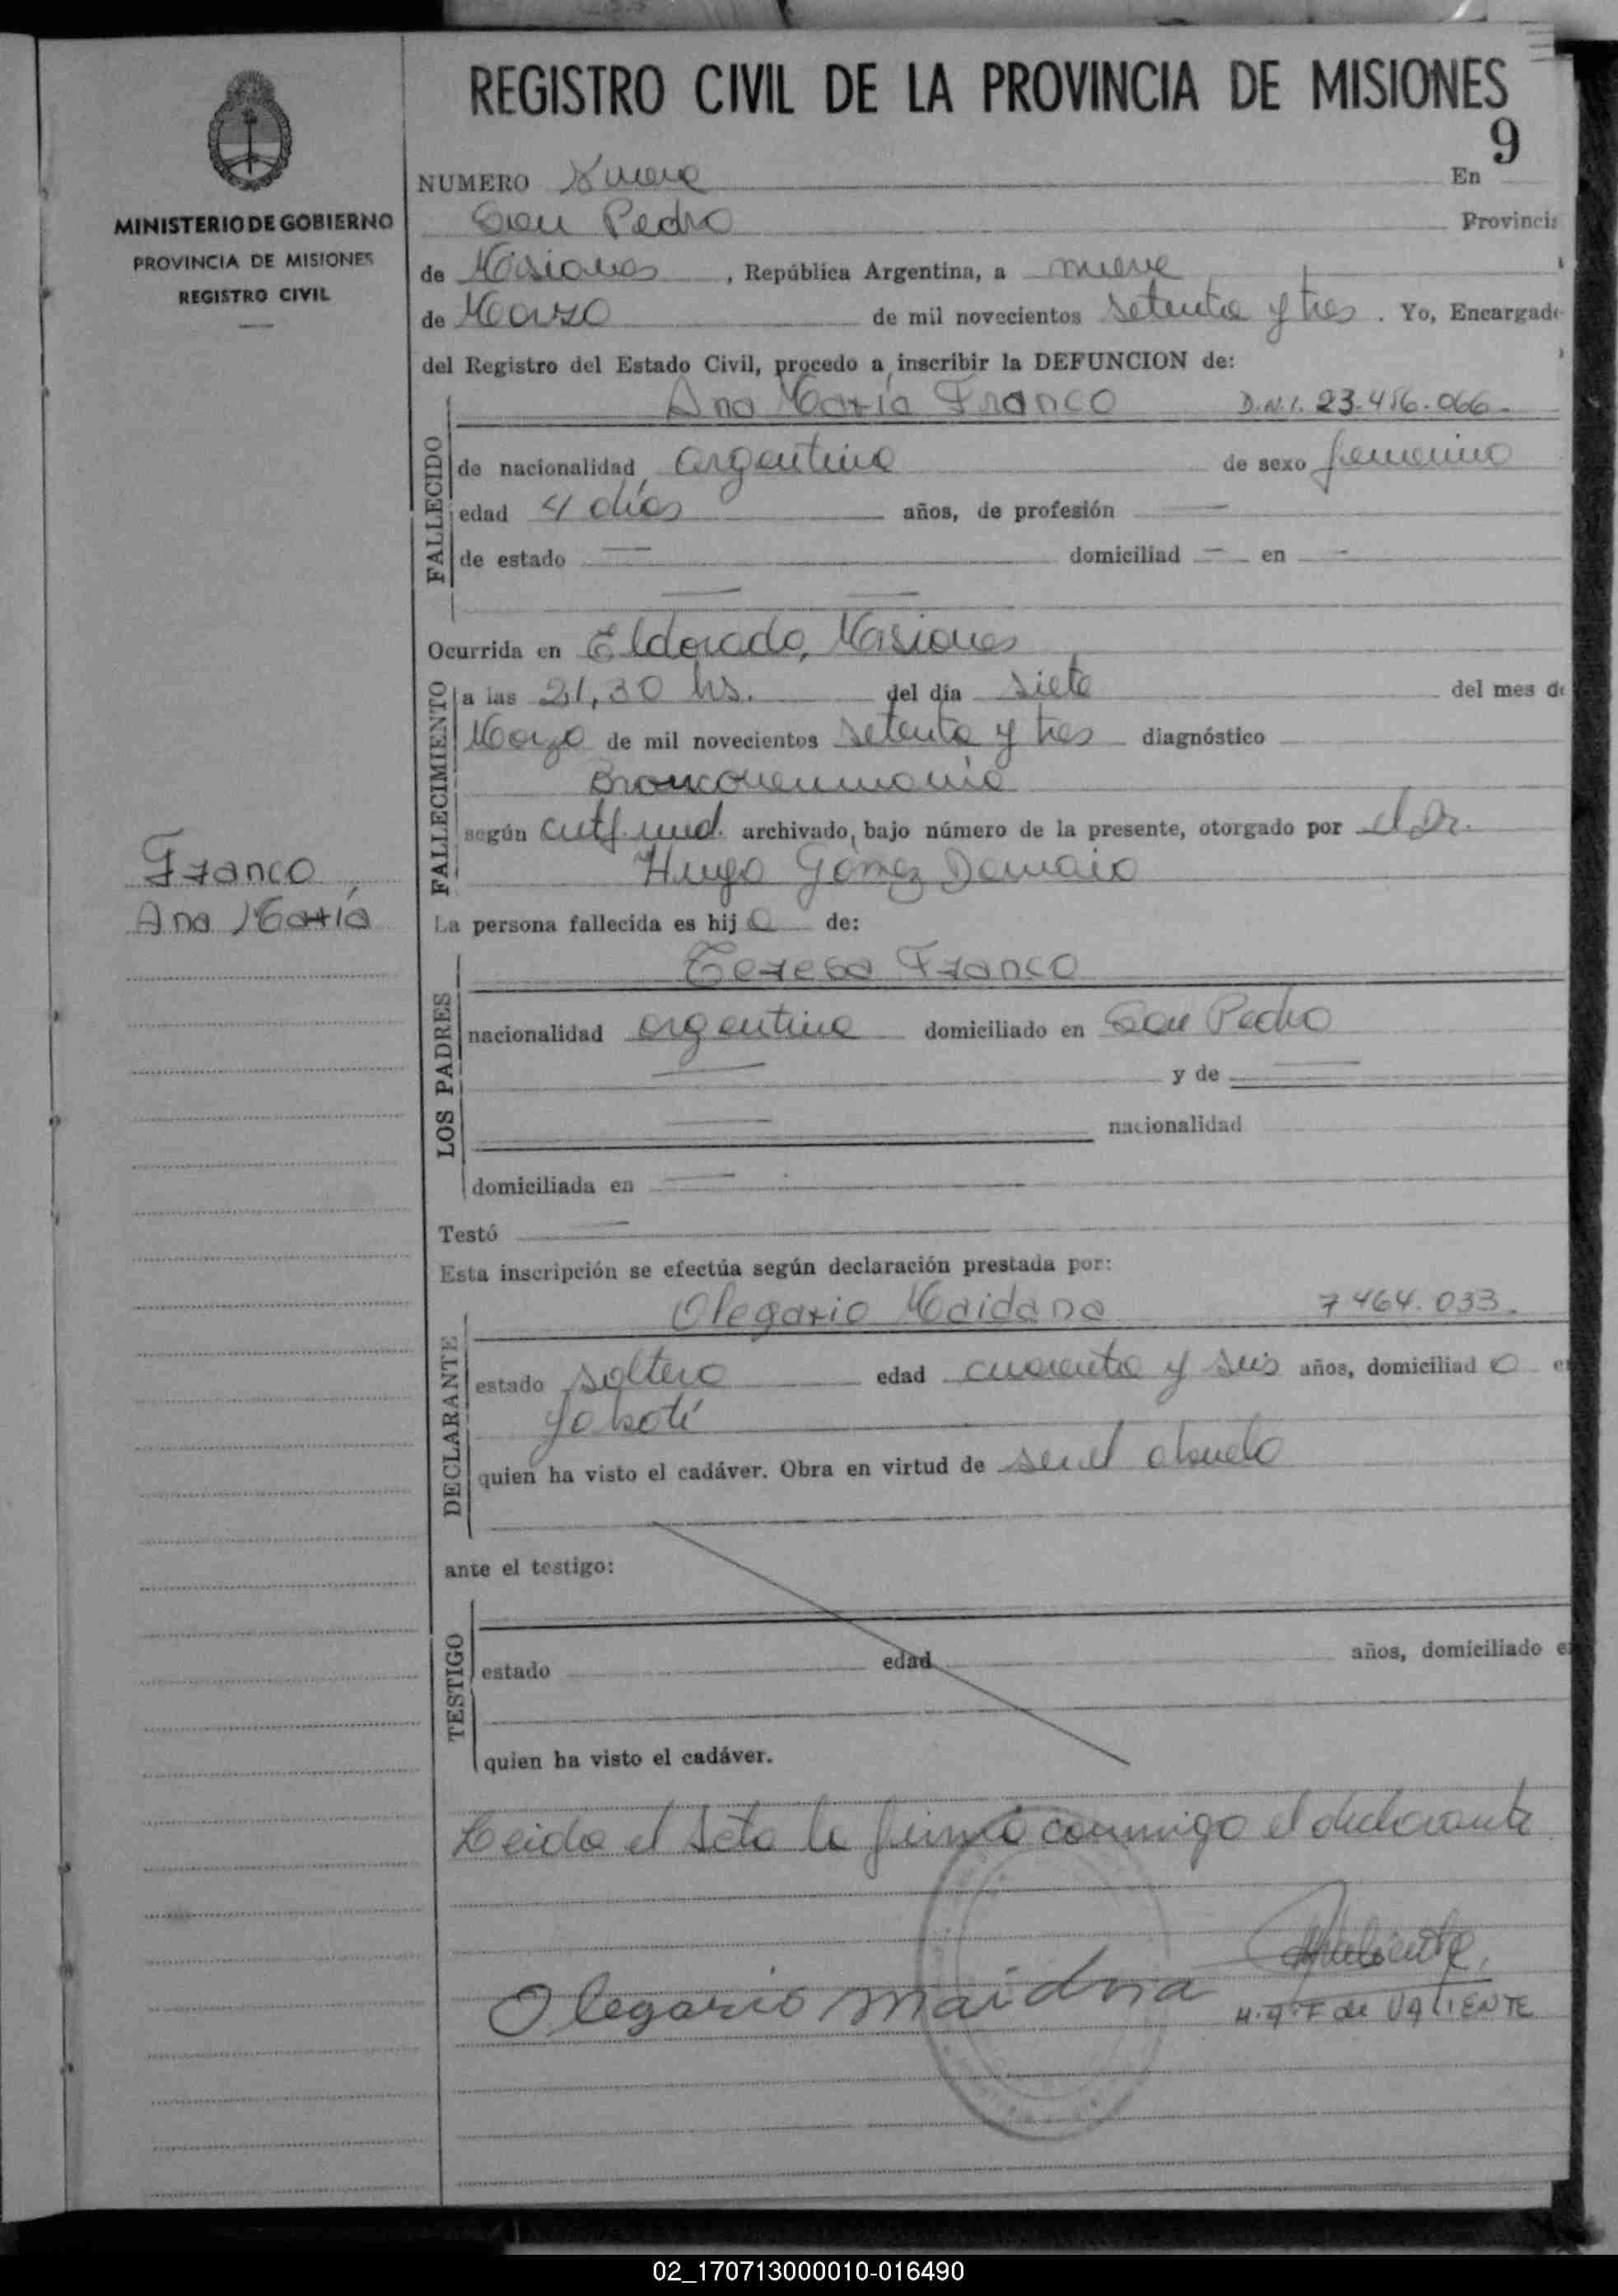 REGISTRO CIVIL DE LA PROVINCIA DE MISIONES
9
MINISTERIO DE GOBIERNO
PROVINCIA DE MISIONES
REGISTRO CIVIL
NUMERO Nueve En
San Pedro Provincia
de Misiones, República Argentina, a nueve
de Marzo de mil novecientos setenta y tres. Yo, Encargado
del Registro del Estado Civil, procedo a inscribir la DEFUNCION de:
Ana María Franco D.N.I. 23.486.066.
FALLECIDO
de nacionalidad argentina de sexo femenino
edad 4 días años, de profesión —
de estado — domiciliad — en —
— —
Ocurrida en Eldorado, Misiones
FALLECIMIENTO
a las 21,30 hs. del día siete del mes de
Marzo de mil novecientos setenta y tres diagnóstico
Bronconeumonia
según certf. med. archivado, bajo número de la presente, otorgado por el Dr.
Hugo Gómez Demaio
Franco
Ana María
La persona fallecida es hij a de:
Teresa Franco
LOS PADRES
nacionalidad argentina domiciliado en San Pedro
— y de —
— nacionalidad
domiciliada en —
Testó —
Esta inscripción se efectúa según declaración prestada por:
Olegario Maidana 7.464.033.
DECLARANTE
estado soltero edad cuarenta y seis años, domiciliad o e
Yabotí
quien ha visto el cadáver. Obra en virtud de ser el abuelo
ante el testigo:
TESTIGO
estado edad años, domiciliado e
quien ha visto el cadáver.
Leida el acta la firma conmigo el declarante
Olegario maidna
H. A. F de VALIENTE
02_170713000010-016490